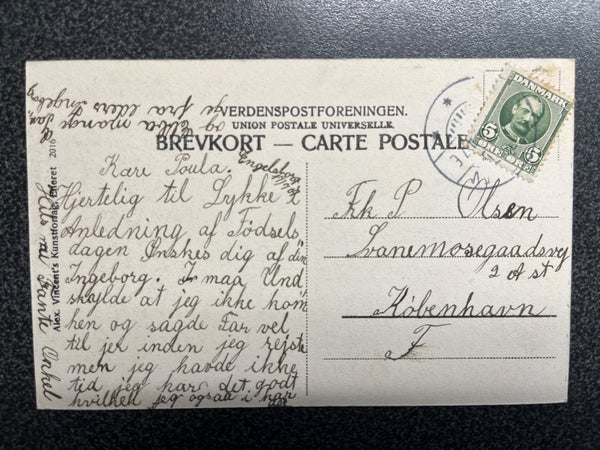 VERDENSPOSTFORENINGEN.
UNION POSTALE UNIVERSELLE.
BREVKORT — CARTE POSTALE
DANMARK
5 5
Alex. Vincent's Kunstforlag, Eneret 2016
Kare Poula.
Hjertelig til Lykke i
Anledning af Fødsels
dagen Ønskes dig af din
Ingeborg. I maa Und
skylde at jeg ikke kom
hen og sagde Far vel
til jer inden jeg rejste
men jeg havde ikke
tid jeg har det godt
hvilken jeg ogsaa i har
det
Hils mi Tante Onkel
og Ebba mange
fra eders Ingeborg
Frk P Olsen
Svanemosegaadsvej
2 A st
København
F